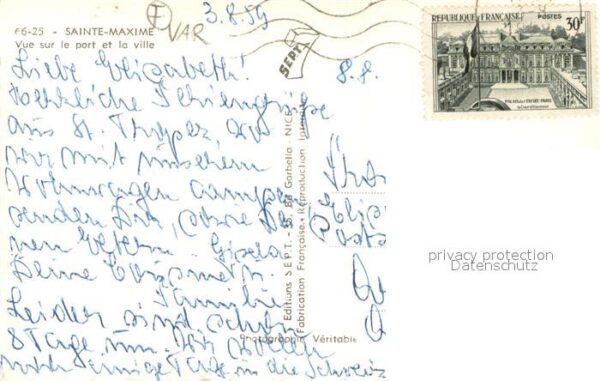 66-25 - SAINTE-MAXIME
Vue sur le port et la ville
VAR
3.8.59
8.8.
RÉPUBLIQUE FRANÇAISE
POSTES
30F
SEPT
Liebe Elisabeth!
Herzliche Feriengrüße
aus St. Tropez, wo
wir mit unserem
Wohnwagen campen
senden Dir, sowie Dei
nen Eltern
Deine
Familie
Leider sind schon
8 Tage um. Wir wollen
noch einige Tage in die Schweiz
Editions SEPT - 35, Bd Gorbella - NICE
Fabrication Française - Reproduction Interdite
Photographie Véritable
privacy protection
Datenschutz